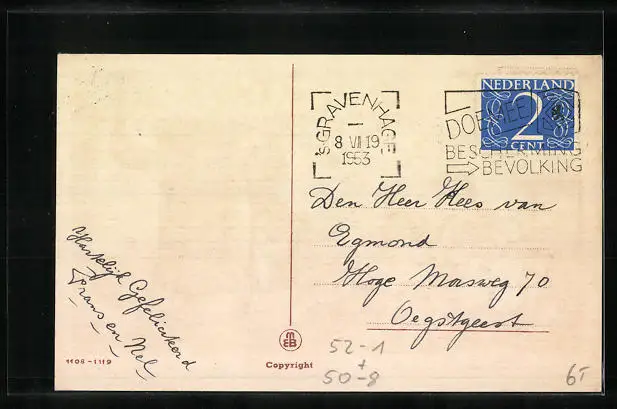 'sGRAVENHAGE
8 VII 19
1953
NEDERLAND
2
CENT
DOE MEE
BESCHERMING
BEVOLKING
Den Heer Kees van
Egmond
Hoge Morsweg 70
Oegstgeest
Hartelijk Gefeliciteerd
Frans en Nel
1108-1119
MEB
Copyright
52-1
+
50-8